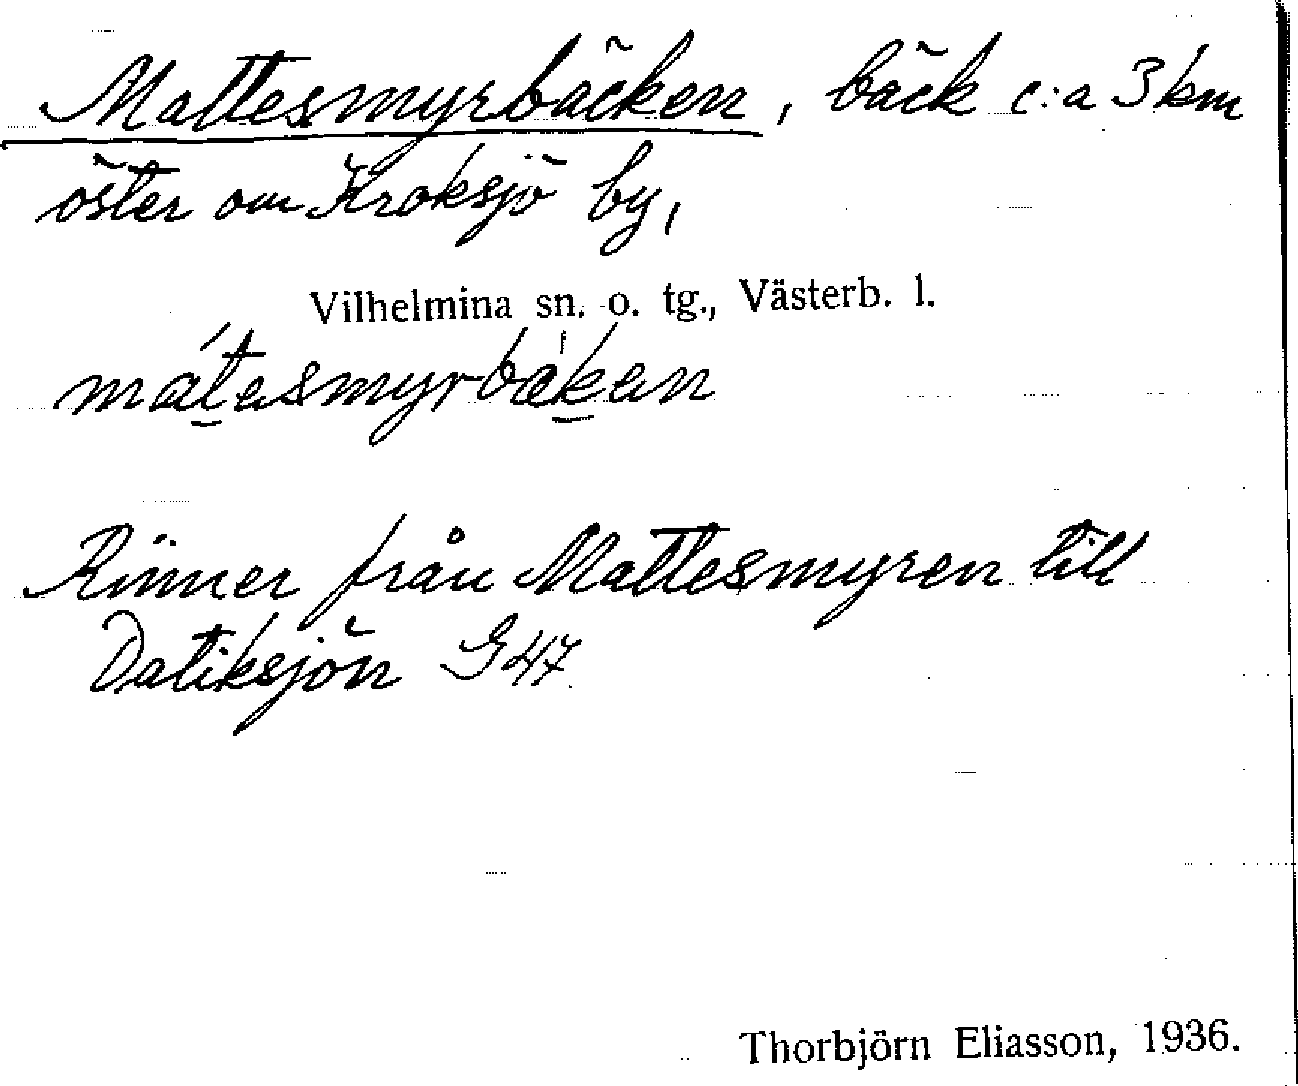 Mattesmyrbäcken, bäck c:a 3 km
öster om Kroksjö by,
Vilhelmina sn. o. tg., Västerb. l.
mátesmyrbäken
Rinner från Mattesmyren till
Datiksjön G 47
Thorbjörn Eliasson, 1936.